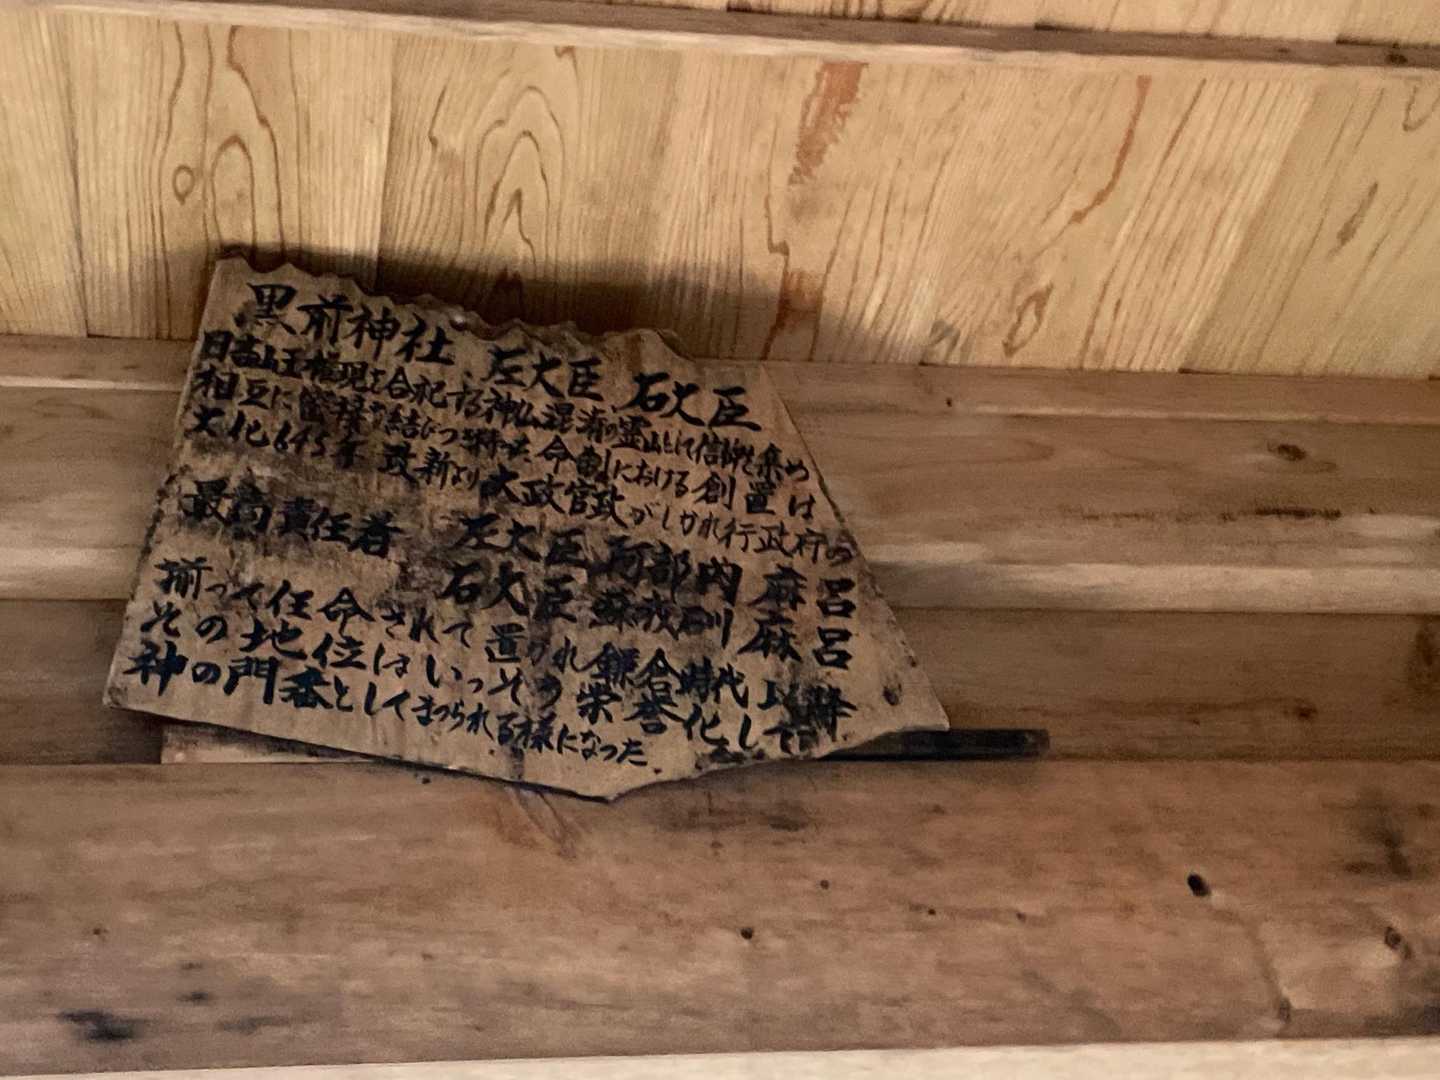 黒前神社 左大臣 右大臣
日吉山王権現を合祀する神仏混淆の霊山として信仰を集め
相互に密接な結びつきを持った。命制における創置は
大化645年 改新より太政官政がしかれ行政府の
最高責任者 左大臣 阿部内麻呂
右大臣 蘇我石川麻呂
揃って任命されて置かれ鎌倉時代以降
その地位はいっそう栄誉化して
神の門番としてまつられる様になった